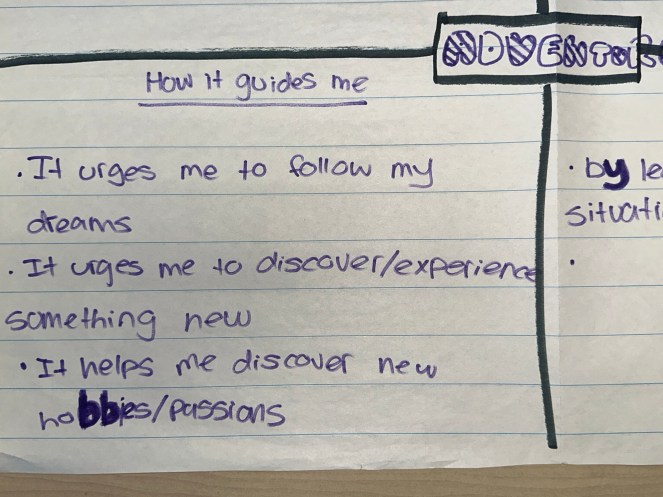 How it guides me
. It urges me to follow my
dreams
. It urges me to discover/experience
something new
• It helps me discover new
hobbies/passions
. by le
situati
.